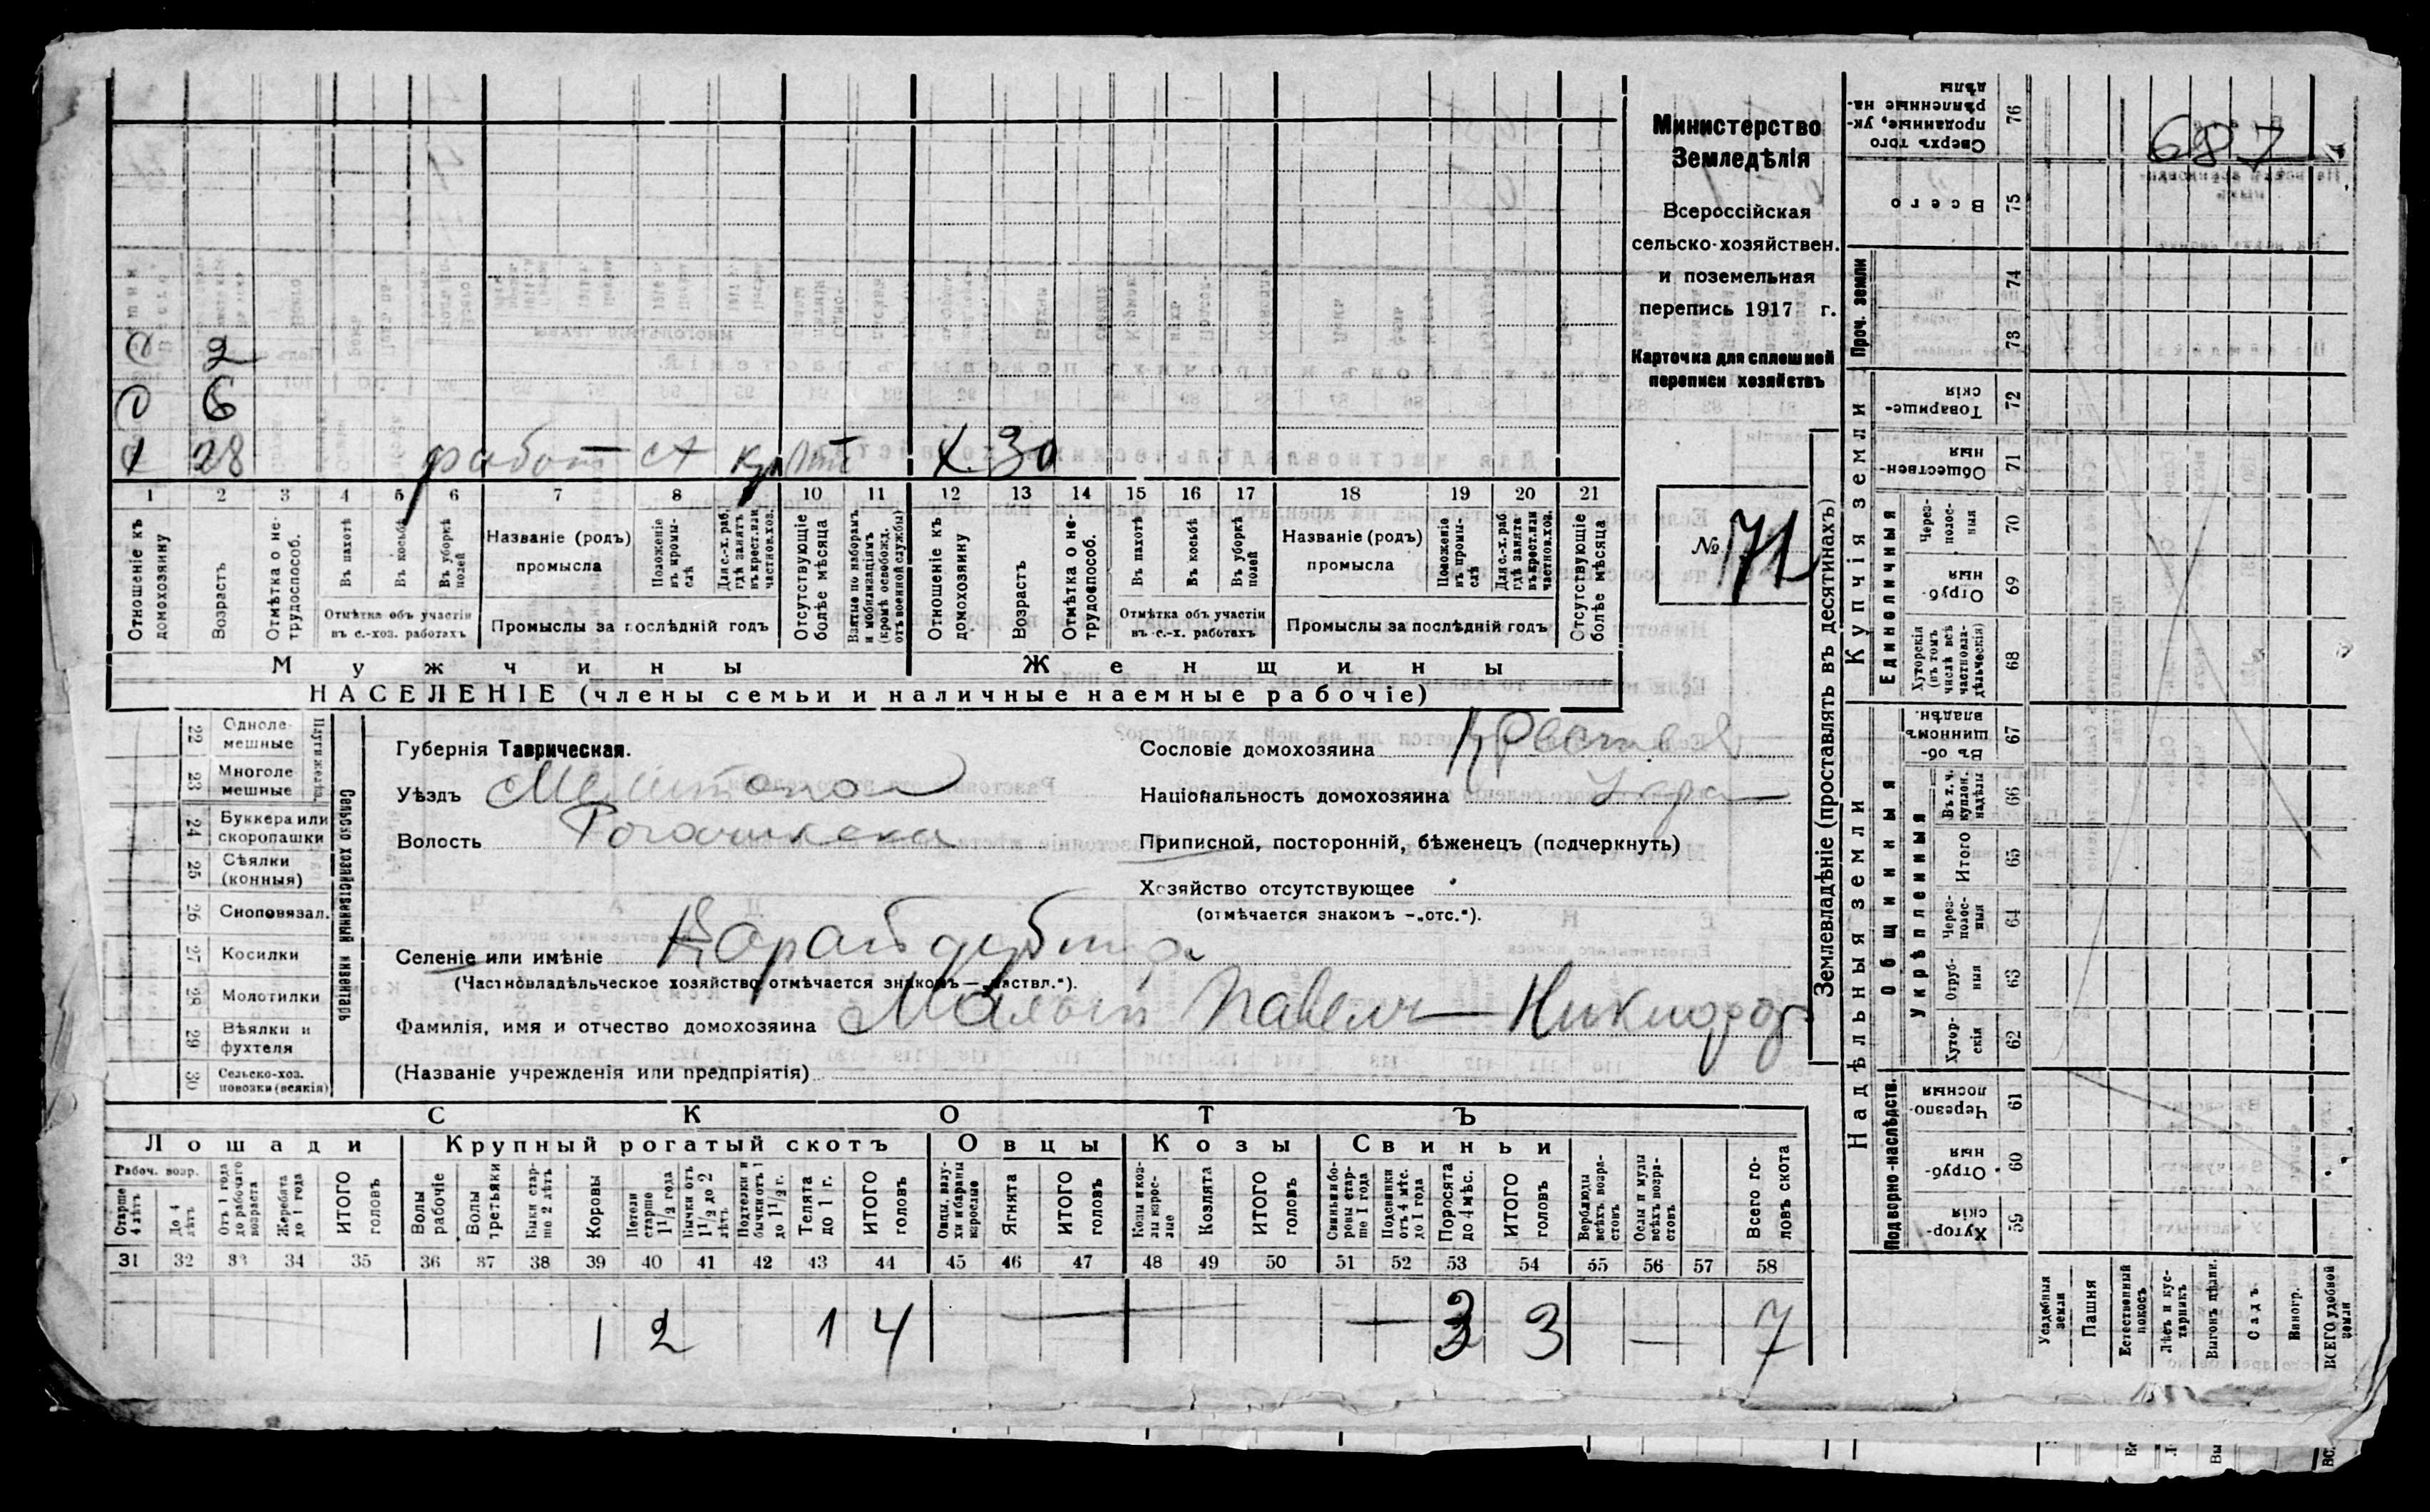 Министерство
Земледѣлія
Всероссійская
сельско-хозяйствен.
и поземельная
перепись 1917 г.
Карточка для сплошной
переписи хозяйствъ
№ 71
687
2
6
1 28 работ кр Х 30
1 2 3 4 5 6 7 8 10 11 12 13 14 15 16 17 18 19 20 21
Отношеніе къ домохозяину
Возрастъ
Отмѣтка о нетрудоспособ.
Въ пахотѣ
Въ косьбѣ
Въ уборкѣ полей
Отмѣтка объ участіи въ с.-хоз. работахъ
Названіе (родъ) промысла
Положеніе въ промыслѣ
Для с.-х. раб. гдѣ занятъ въ крест. или частнов. хоз.
Промыслы за послѣдній годъ
Отсутствующіе болѣе мѣсяца
Взятые по наборамъ и мобилизаціямъ (кромѣ освобожд. отъ военной службы)
Отношеніе къ домохозяину
Возрастъ
Отмѣтка о нетрудоспособ.
Въ пахотѣ
Въ косьбѣ
Въ уборкѣ полей
Отмѣтка объ участіи въ с.-х. работахъ
Названіе (родъ) промысла
Положеніе въ промыслѣ
Для с.-х. раб. гдѣ занята въ крест. или частнов. хоз.
Промыслы за послѣдній годъ
Отсутствующіе болѣе мѣсяца
Мужчины Женщины
НАСЕЛЕНІЕ (члены семьи и наличные наемные рабочіе)
22 Однолемешные
23 Многолемешные
24 Буккера или скоропашки
25 Сѣялки (конныя)
26 Сноповязал.
27 Косилки
28 Молотилки
29 Вѣялки и фухтеля
30 Сельско-хоз. повозки (всякія)
Сельско хозяйственный инвентарь
Губернія Таврическая.
Уѣздъ Мелитопол
Волость Рогачикска
Селеніе или имѣніе
(Частновладѣльческое хозяйство отмѣчается знакомъ —„частвл.“).
Фамилія, имя и отчество домохозяина Малый Павелъ Никифор
(Названіе учрежденія или предпріятія)
Сословіе домохозяина
Національность домохозяина Укра
Приписной, посторонній, бѣженецъ (подчеркнуть)
Хозяйство отсутствующее
(отмѣчается знакомъ —„отс.“).
СКОТЪ
Лошади Крупный рогатый скотъ Овцы Козы Свиньи
Рабоч. возр.
Старше 4 лѣтъ
До 4 лѣтъ
Отъ 1 года до рабочаго возраста
Жеребята до 1 года
ИТОГО головъ
Волы рабочіе
Волы третьяки
Быки старше 2 лѣтъ
Коровы
Нетели старше 1 1/2 года
Бычки отъ 1 1/2 до 2 лѣтъ
Подтелки и бычки отъ 1 до 1 1/2 г.
Телята до 1 г.
ИТОГО головъ
Овцы, валухи и бараны взрослые
Ягнята
ИТОГО головъ
Козы и козлы взрослые
Козлята
ИТОГО головъ
Свиньи и боровы старше 1 года
Подсвинки отъ 4 мѣс. до 1 года
Поросята до 4 мѣс.
ИТОГО головъ
Верблюды всѣхъ возрастовъ
Ослы и мулы всѣхъ возрастовъ
Всего головъ скота
31 32 33 34 35 36 37 38 39 40 41 42 43 44 45 46 47 48 49 50 51 52 53 54 55 56 57 58
1 2 1 4 — — 3 3 — 7
Землевладѣніе (проставлять въ десятинахъ)
Купчія земли
Надѣльныя земли
Проч. земли
Единоличныя
Общинныя
Укрѣпленныя
Подворно-наслѣдств.
Сверхъ того проданные, укрѣпленные надѣлы 76
Всего 75
74
73
Товарищескія 72
Общественныя 71
Черезполосныя 70
Отрубныя 69
Хуторскія (въ томъ числѣ всѣ частновладѣльческія) 68
Въ общинномъ владѣн. 67
Въ т. ч. куплен. надѣлы 66
Итого 65
Черезполосныя 64
Отрубныя 63
Хуторскія 62
Черезполосныя 61
Отрубныя 60
Хуторскія 59
Усадебныя земли
Пашня
Естественный покосъ
Лѣсъ и кустарникъ
Выгонъ цѣлин.
Садъ
Виногр.
ВСЕГО удобной земли